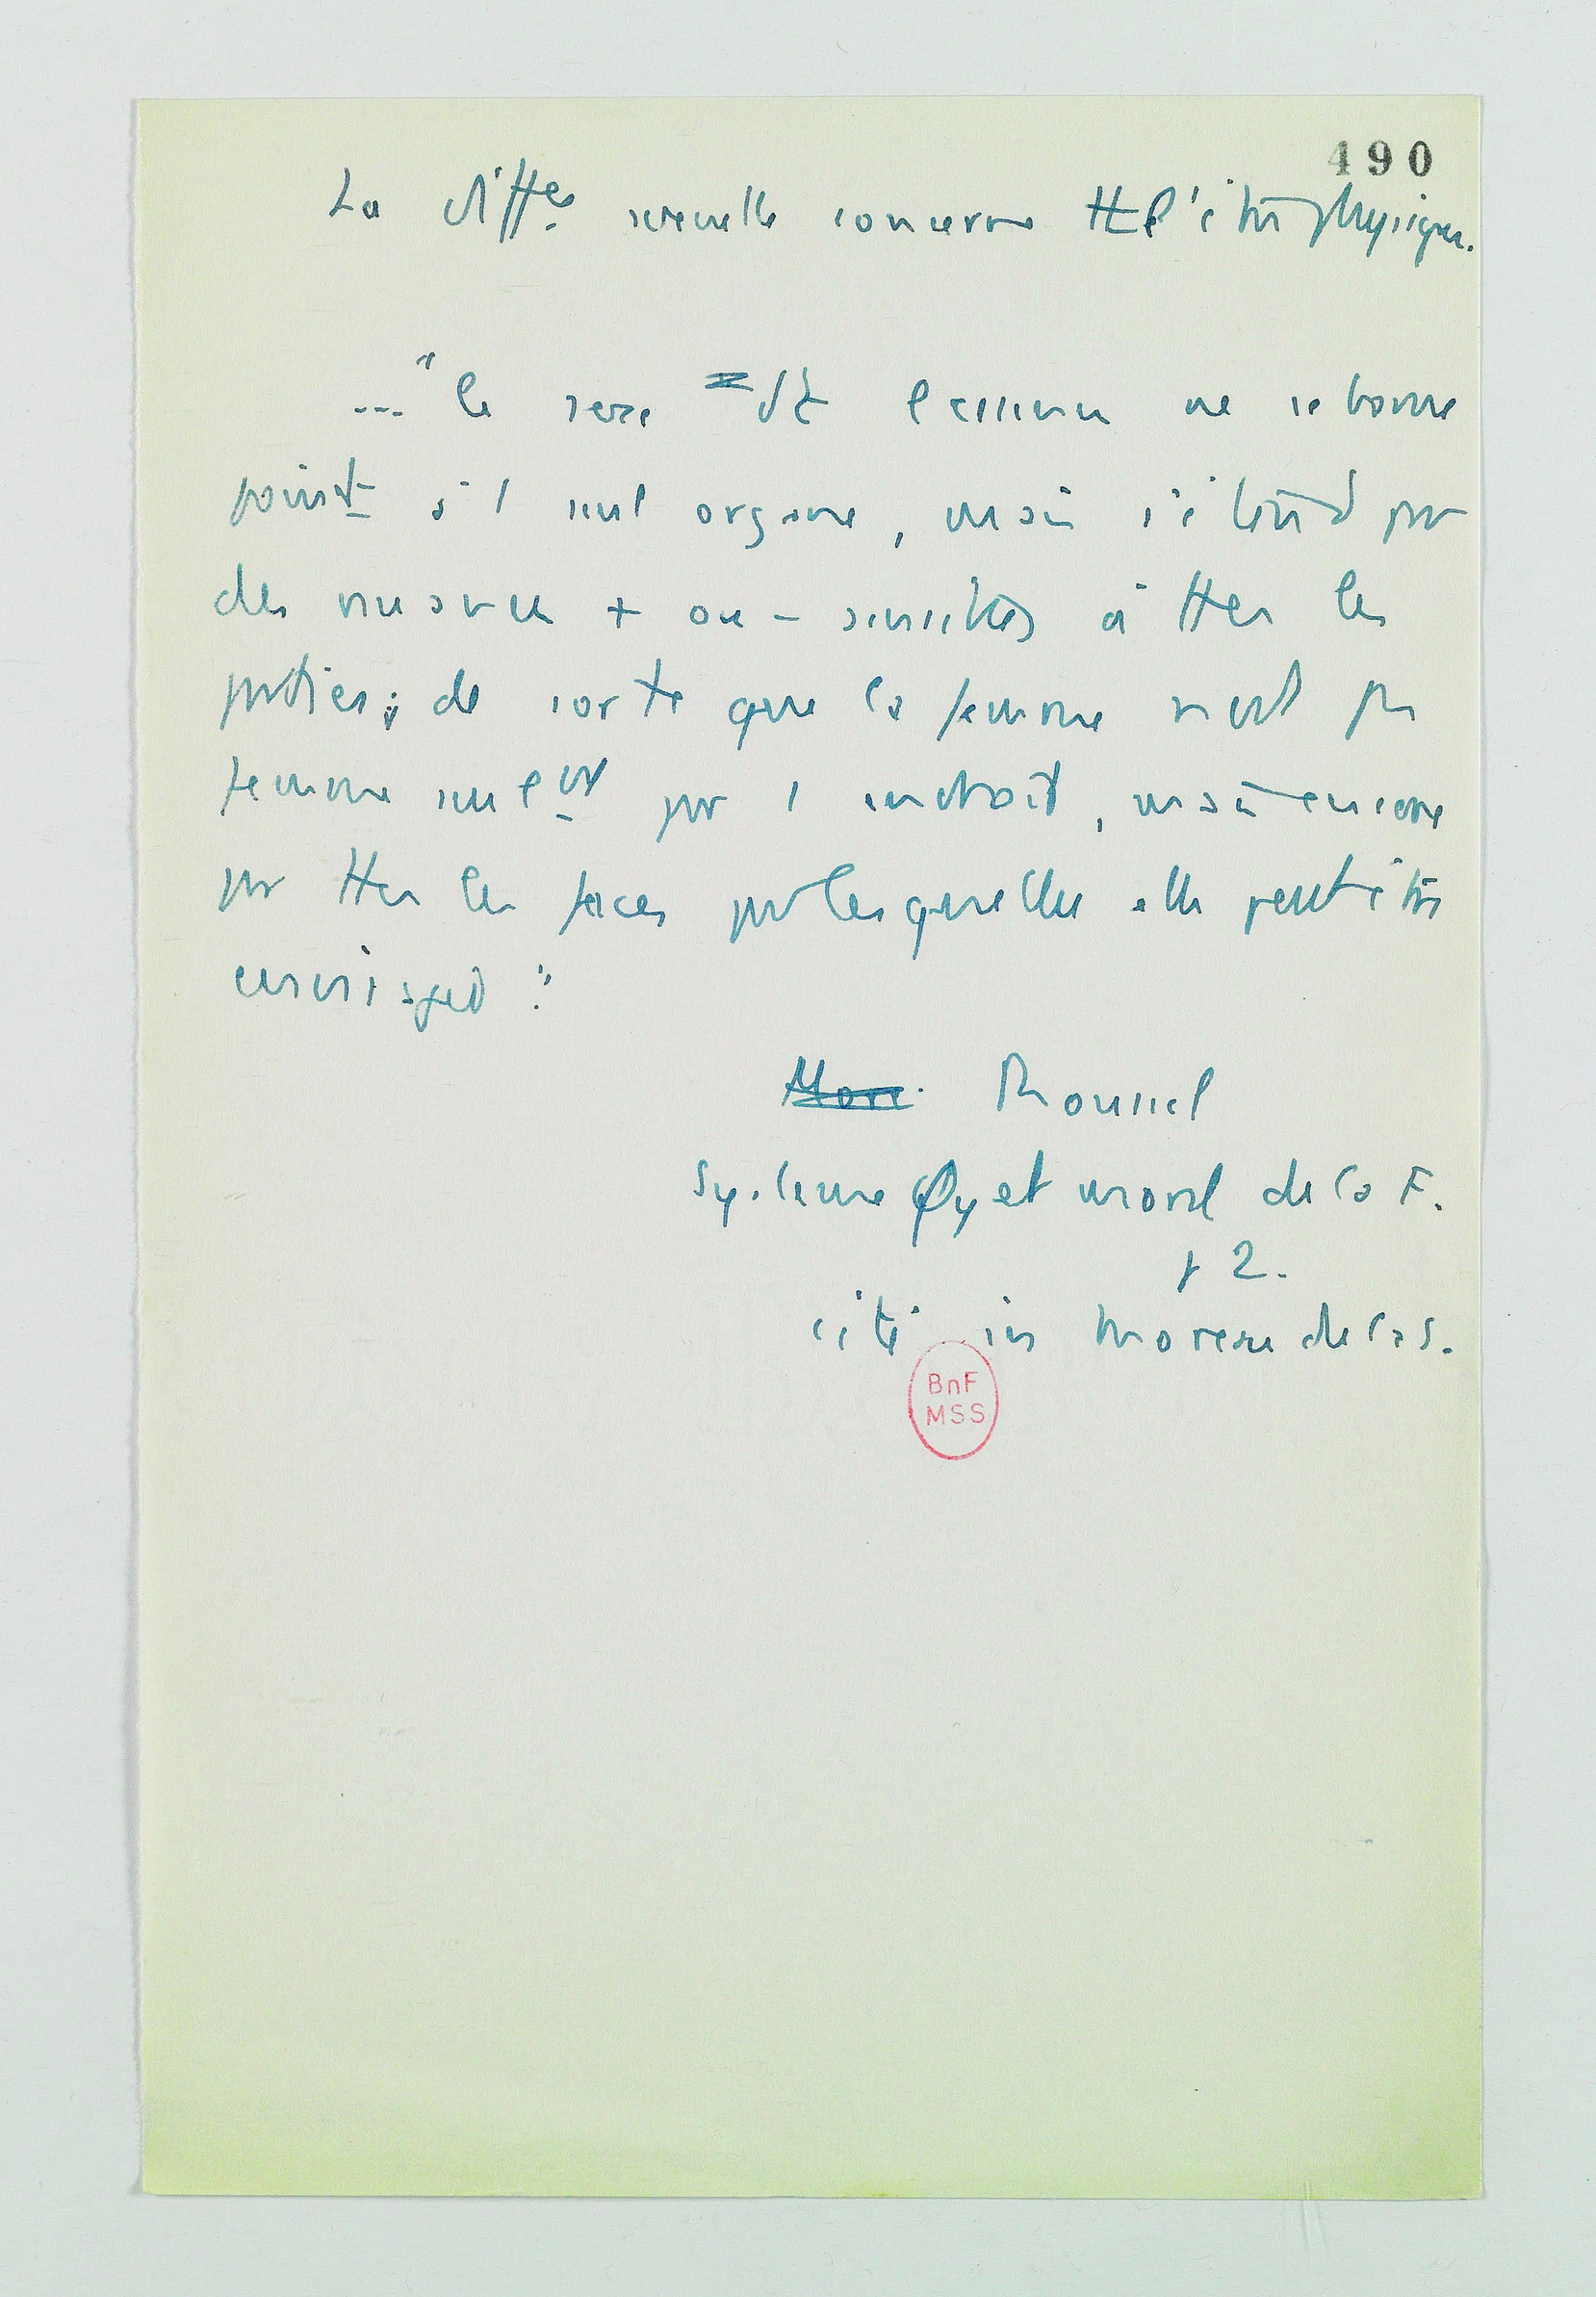 490
La diffce sexuelle concerne tt l'être physique.
..." le sexe dt l'examen ne se borne
point à 1 seul organe, mais s'étend par
des nuances + ou - sensibles à ttes les
parties ; de sorte que la femme n'est pas
femme seulemt par 1 endroit, mais encore
par ttes les faces par lesquelles elle peut être
envisagée".
More Roussel
Système Φy et moral de la F.
p 2.
cité in Moreau de la S.
BnF
MSS